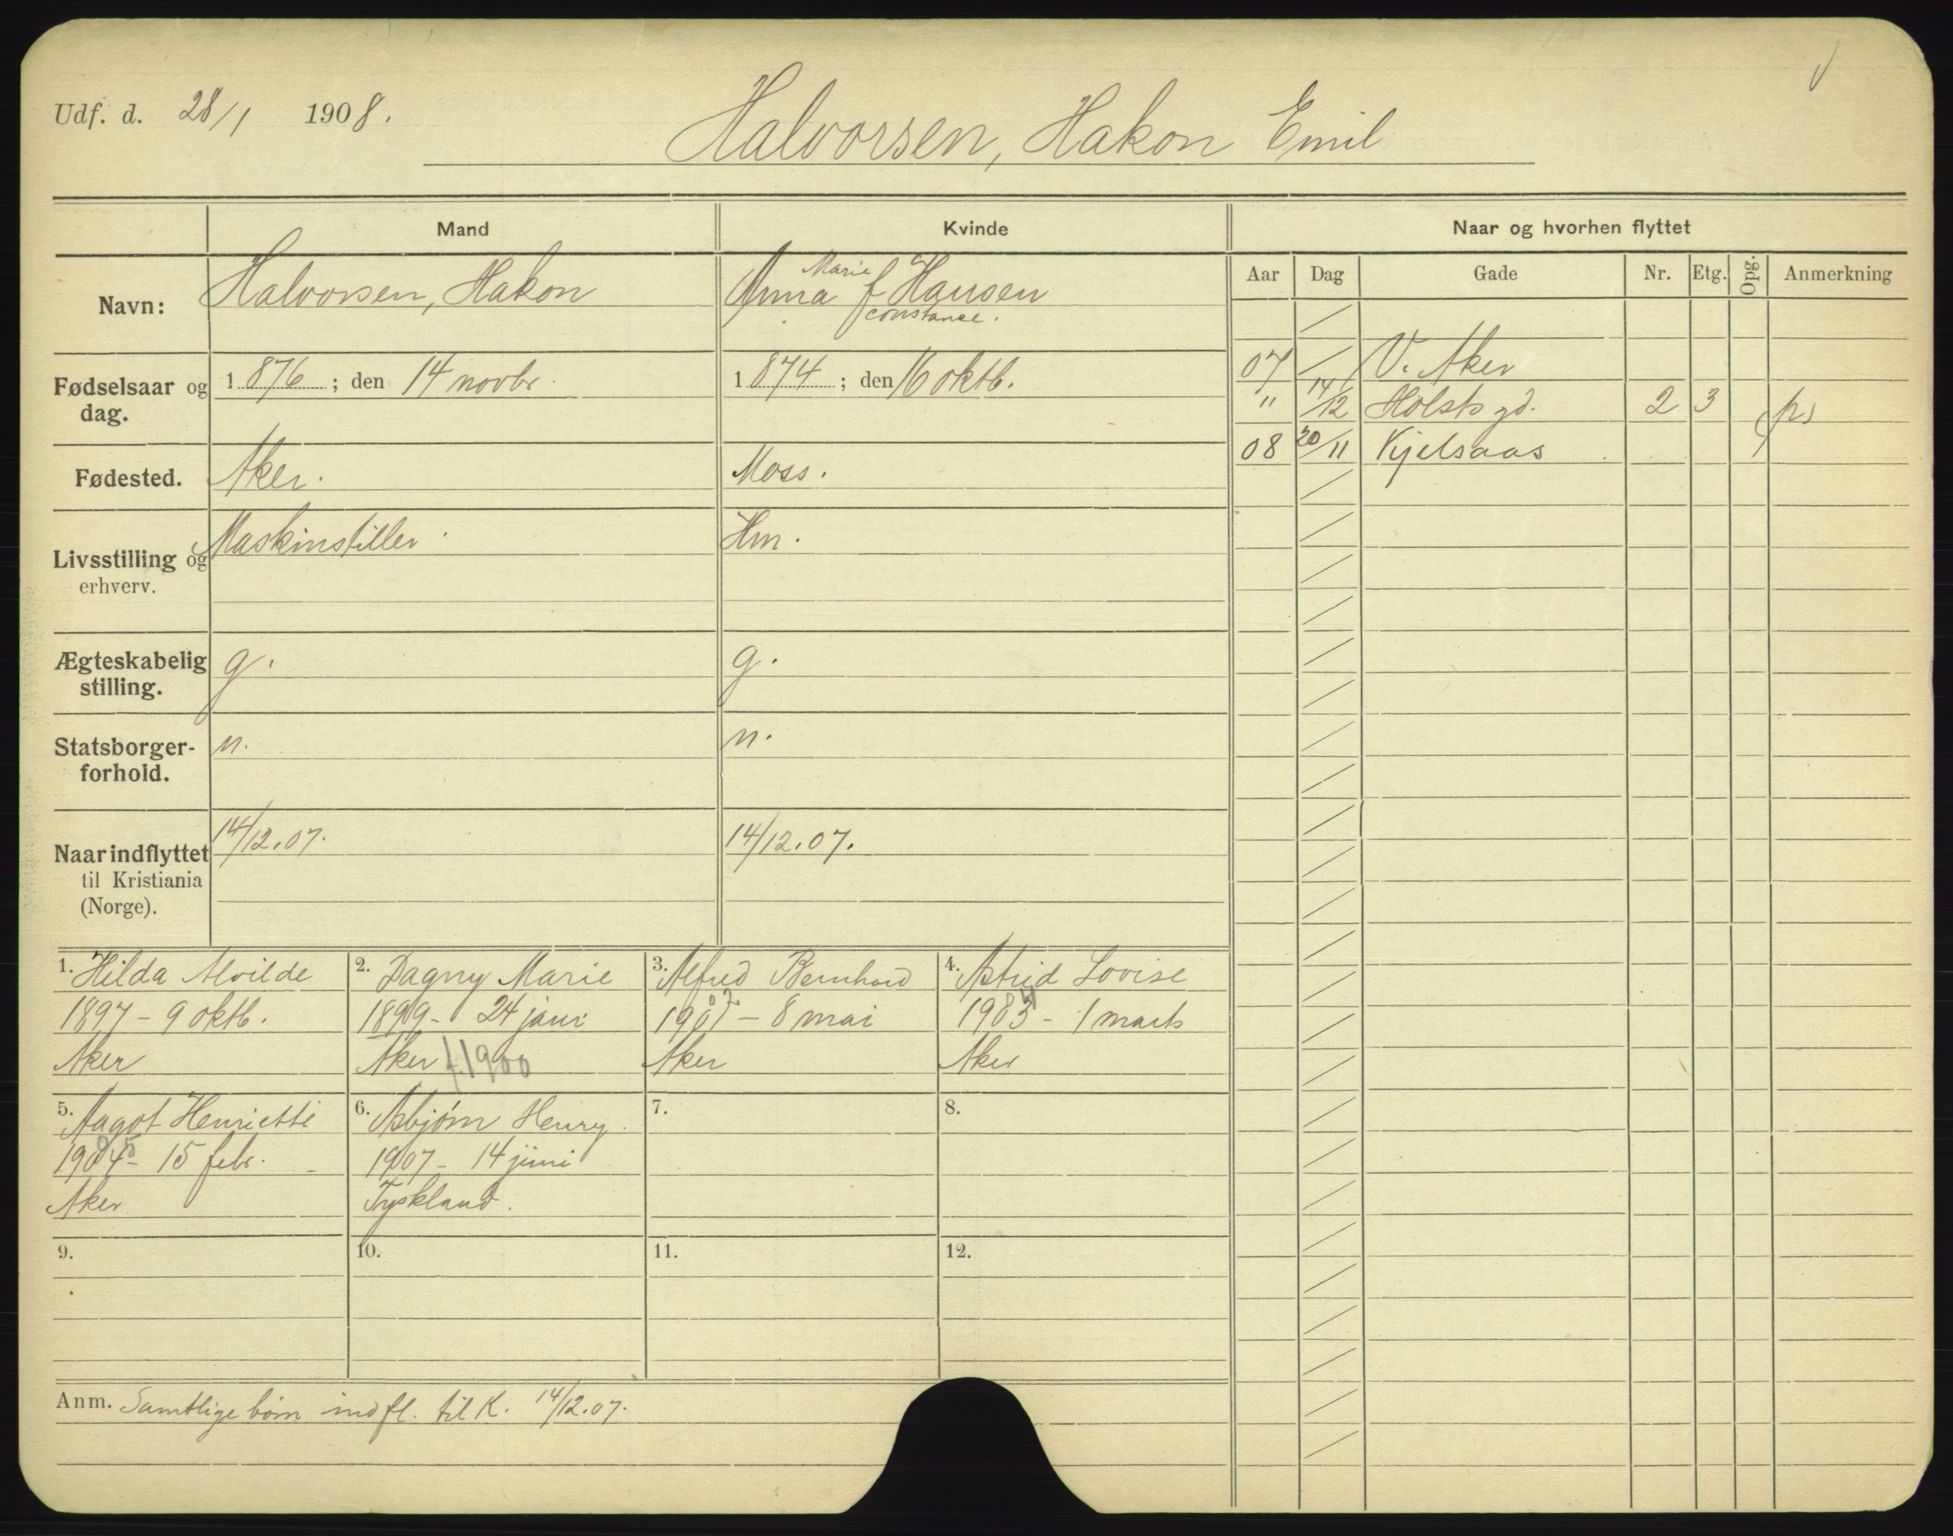 Udf. d. 28/1 1908.
Halvorsen, Hakon Emil
Mand Kvinde Naar og hvorhen flyttet
Aar Dag Gade Nr. Etg. Opg. Anmerkning
Navn: Halvorsen, Hakon Anna Marie f Hansen
Constance.
Fødselsaar og dag. 1876; den 14 novbr. 1874; den 16 oktb.
Fødested. Aker. Moss.
Livsstilling og erhverv. Maskinstiller Hm.
Ægteskabelig stilling. g. g.
Statsborgerforhold. n. n.
Naar indflyttet til Kristiania (Norge). 14/12.07. 14/12.07.
07 / V. Aker
" 14/12 Holsts gd. 2 3
08 20/11 Kjelsaas
1. Hilda Alvilde
1897 - 9 oktb.
Aker
2. Dagny Marie
1899 - 24 jan
Aker f. 1900
3. Alfred Bernhard
1902 - 8 mai
Aker
4. Astrid Lovise
1904 - 1 marts
Aker
5. Aagot Henriette
1905 - 15 febr.
Aker
6. Asbjørn Henry.
1907 - 14 juni
Tyskland.
7.
8.
9.
10.
11.
12.
Anm. Samtlige børn indfl. til K. 14/12.07.